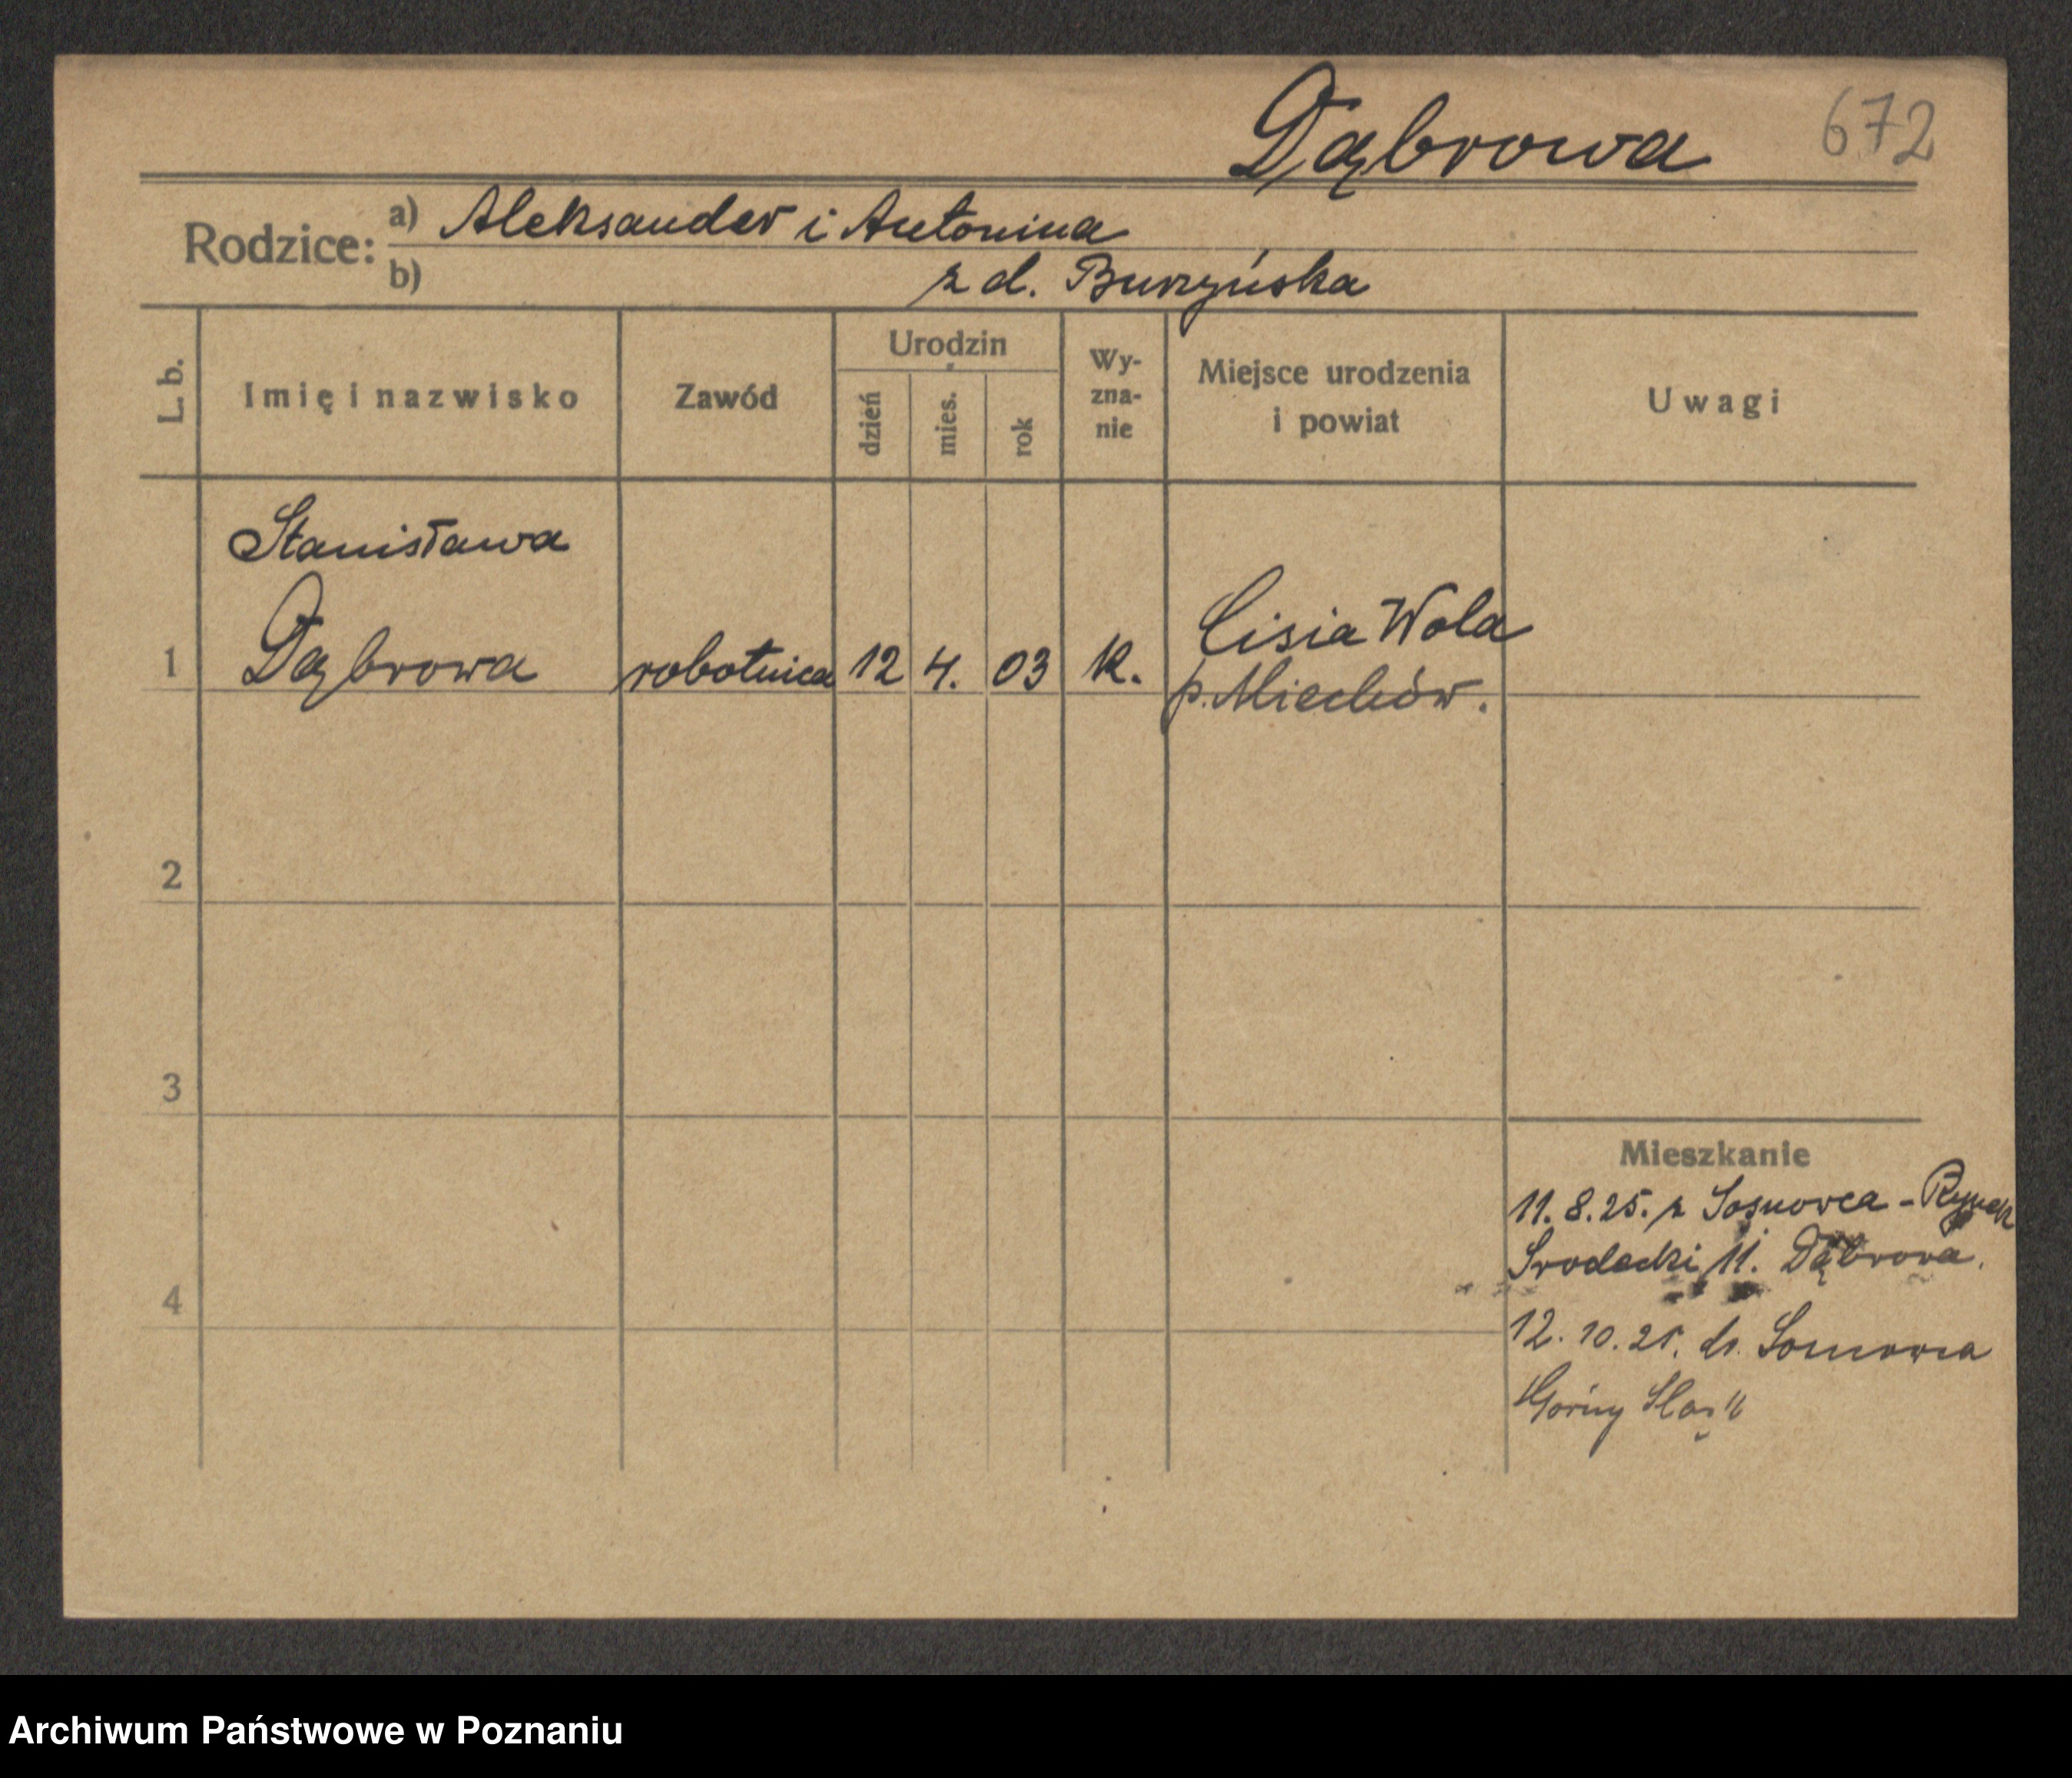 Dąbrowa 672
Rodzice: a) Aleksander i Antonina
b) z d. Burzyńska
L. b. Imię i nazwisko Zawód Urodzin dzień mies. rok Wy-zna-nie Miejsce urodzenia i powiat Uwagi
Stanisława
1 Dąbrowa robotnica 12 4. 03 k. Cisia Wola
p. Miechów.
2
3
Mieszkanie
11.8.25. z Sosnowca - Rynek
Srodecki 11. Dąbrowa.
4
12.10.25. do Sosnowca
Górny Śląsk
Archiwum Państwowe w Poznaniu